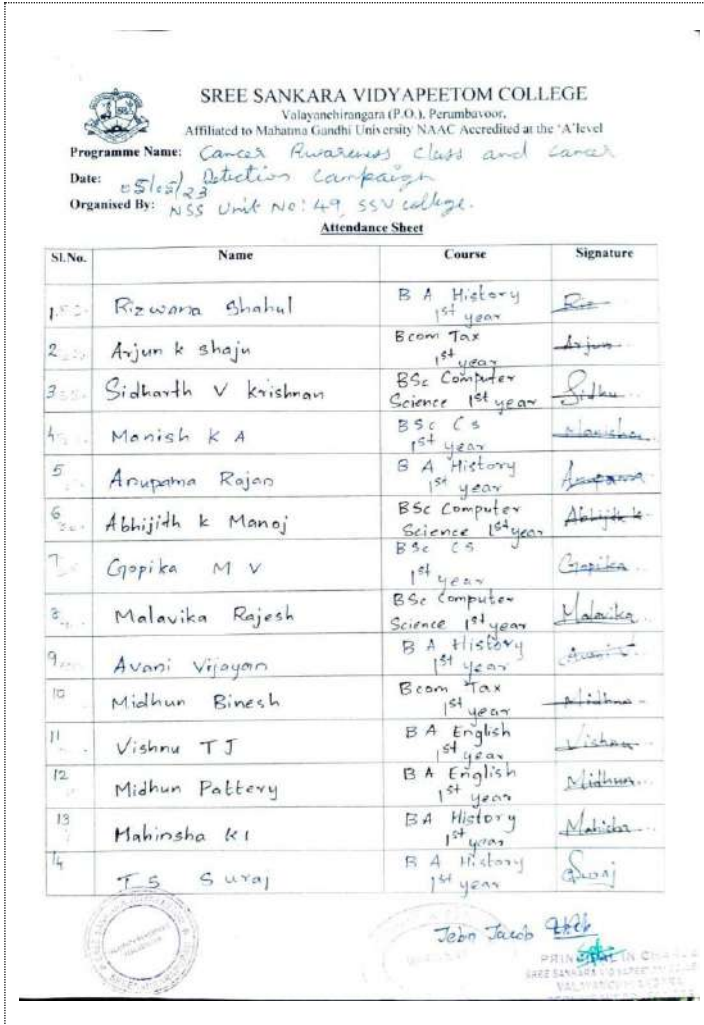 SREE SANKARA VIDYAPEETOM COLLEGE
Valayanchirangara (P.O.), Perumbavoor,
Affiliated to Mahatma Gandhi University NAAC Accredited at the 'A' level
Programme Name: Cancer Awareness Class and Cancer
Detection Campaign
Date: 05/05/23
Organised By: NSS Unit No: 49, SSV college.
Attendance Sheet
Sl.No. Name Course Signature
1. Rizwana Shahul B A History 1st year Riz
2 Arjun k shaju Bcom Tax 1st year Arjun
3 Sidharth V Krishnan BSc Computer Science 1st year Sidhu
4 Manish K A BSc Cs 1st year
5 Anupama Rajan B A History 1st year Anupama
6 Abhijith k Manoj BSc Computer Science 1st year Abhijith k
7 Gopika M V BSc CS 1st year Gopika
8 Malavika Rajesh BSc Computer Science 1st year Malavika
9 Avani Vijayan B A History 1st year
10 Midhun Binesh Bcom Tax 1st year Midhun
11 Vishnu T J B A English 1st year Vishnu
12 Midhun Pattery B A English 1st year Midhun
13 Mahinsha K I B A History 1st year
14 T S Suraj B A History 1st year Suraj
Jebn Jacob
PRINCIPAL IN CHARGE
SREE SANKARA VIDYAPEETOM COLLEGE